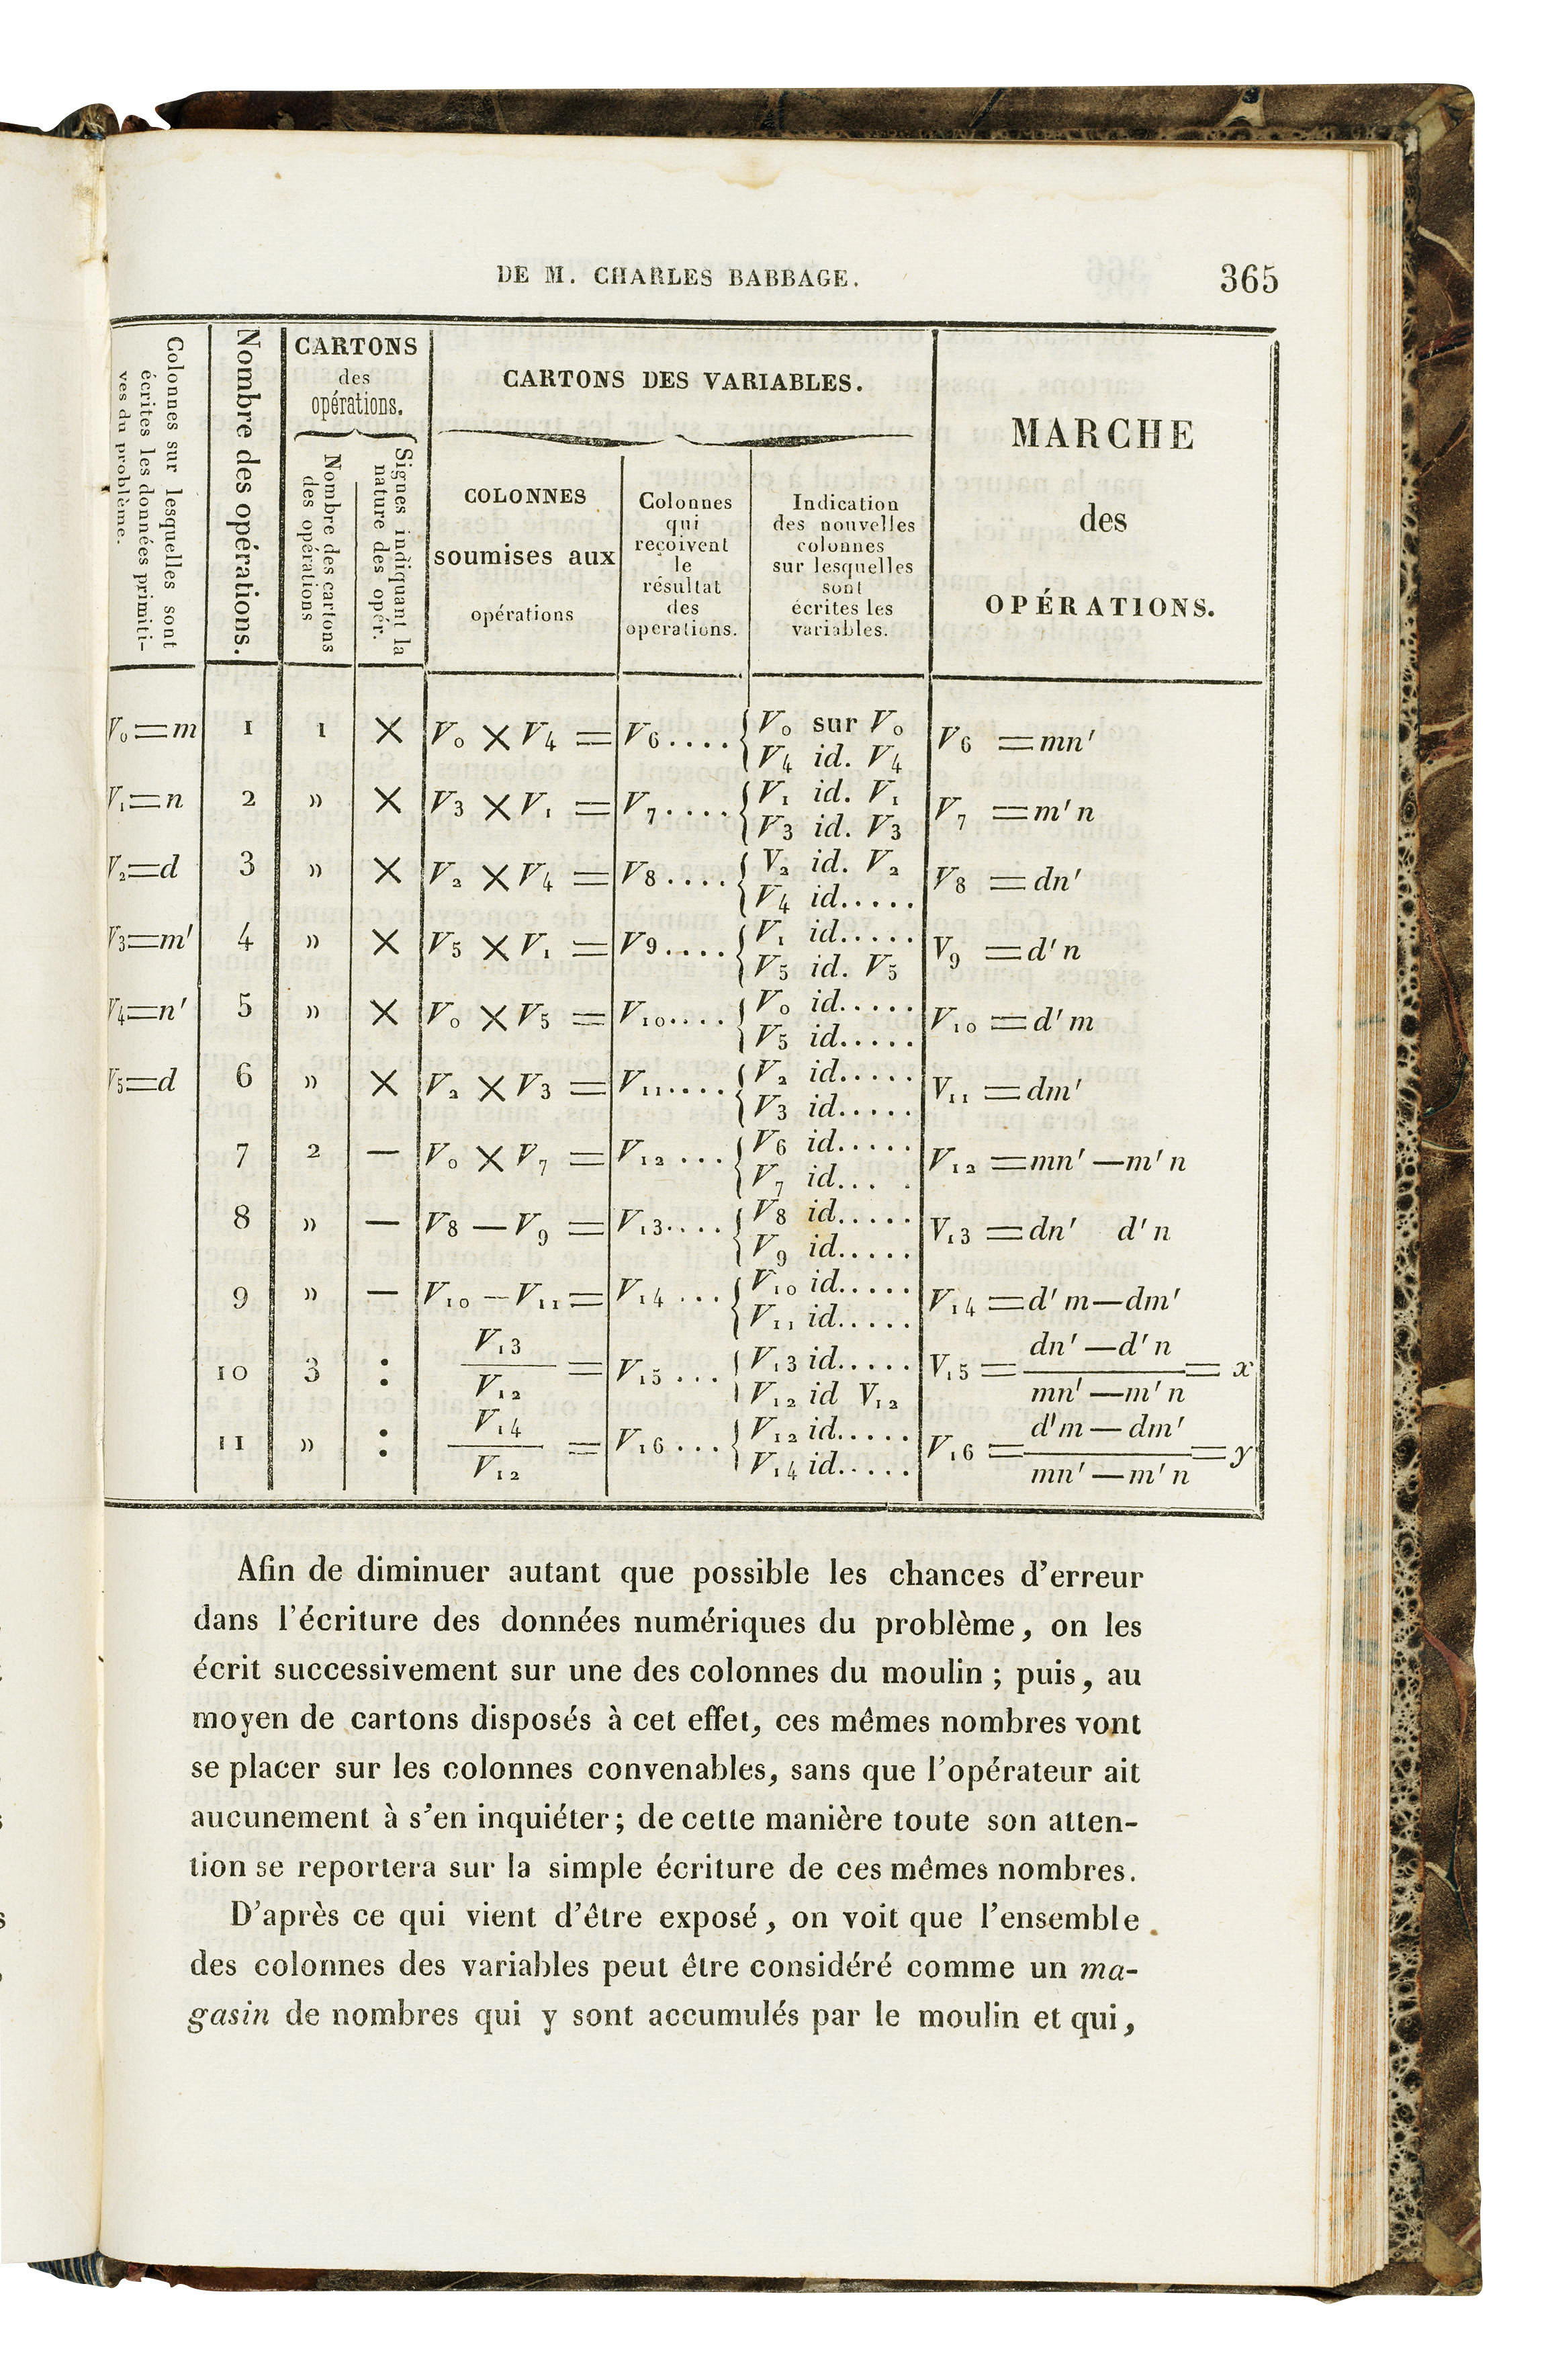 DE M. CHARLES BABBAGE.
365
Colonnes sur lesquelles sont
écrites les données primiti-
ves du problème.
Nombre des opérations.
CARTONS
des
opérations.
Nombre des cartons
des opérations
Signes indiquant la
nature des opér.
CARTONS DES VARIABLES.
COLONNES
soumises aux
opérations
Colonnes
qui
reçoivent
le
résultat
des
operations.
Indication
des nouvelles
colonnes
sur lesquelles
sont
écrites les
variables.
MARCHE
des
OPÉRATIONS.
V₀=m 1 1 × V₀ × V₄ = V₆.... { V₀ sur V₀ V₆ =mn'
V₄ id. V₄
V₁=n 2 » × V₃ × V₁ = V₇.... { V₁ id. V₁ V₇ =m'n
V₃ id. V₃
V₂=d 3 » × V₂ × V₄ = V₈.... { V₂ id. V₂ V₈ =dn'
V₄ id.....
V₃=m' 4 » × V₅ × V₁ = V₉.... { V₁ id..... V₉ =d'n
V₅ id. V₅
V₄=n' 5 » × V₀ × V₅ = V₁₀.... { V₀ id..... V₁₀ =d'm
V₅ id.....
V₅=d 6 » × V₂ × V₃ = V₁₁.... { V₂ id..... V₁₁ =dm'
V₃ id.....
7 2 — V₀ × V₇ = V₁₂ ... { V₆ id..... V₁₂ =mn'—m'n
V₇ id... .
8 » — V₈ — V₉ = V₁₃.... { V₈ id..... V₁₃ =dn' d'n
V₉ id.....
9 » — V₁₀ — V₁₁ = V₁₄ ... { V₁₀ id..... V₁₄ =d'm—dm'
V₁₁ id.....
10 3 : V₁₃/V₁₂ = V₁₅ ... { V₁₃ id..... V₁₅ = dn'—d'n / mn'—m'n = x
V₁₂ id V₁₂
11 » : V₁₄/V₁₂ = V₁₆ ... { V₁₂ id..... V₁₆ = d'm—dm' / mn'—m'n = y
V₁₄ id.....
Afin de diminuer autant que possible les chances d'erreur
dans l'écriture des données numériques du problème, on les
écrit successivement sur une des colonnes du moulin ; puis, au
moyen de cartons disposés à cet effet, ces mêmes nombres vont
se placer sur les colonnes convenables, sans que l'opérateur ait
aucunement à s'en inquiéter ; de cette manière toute son atten-
tion se reportera sur la simple écriture de ces mêmes nombres.
D'après ce qui vient d'être exposé, on voit que l'ensemble
des colonnes des variables peut être considéré comme un ma-
gasin de nombres qui y sont accumulés par le moulin et qui,